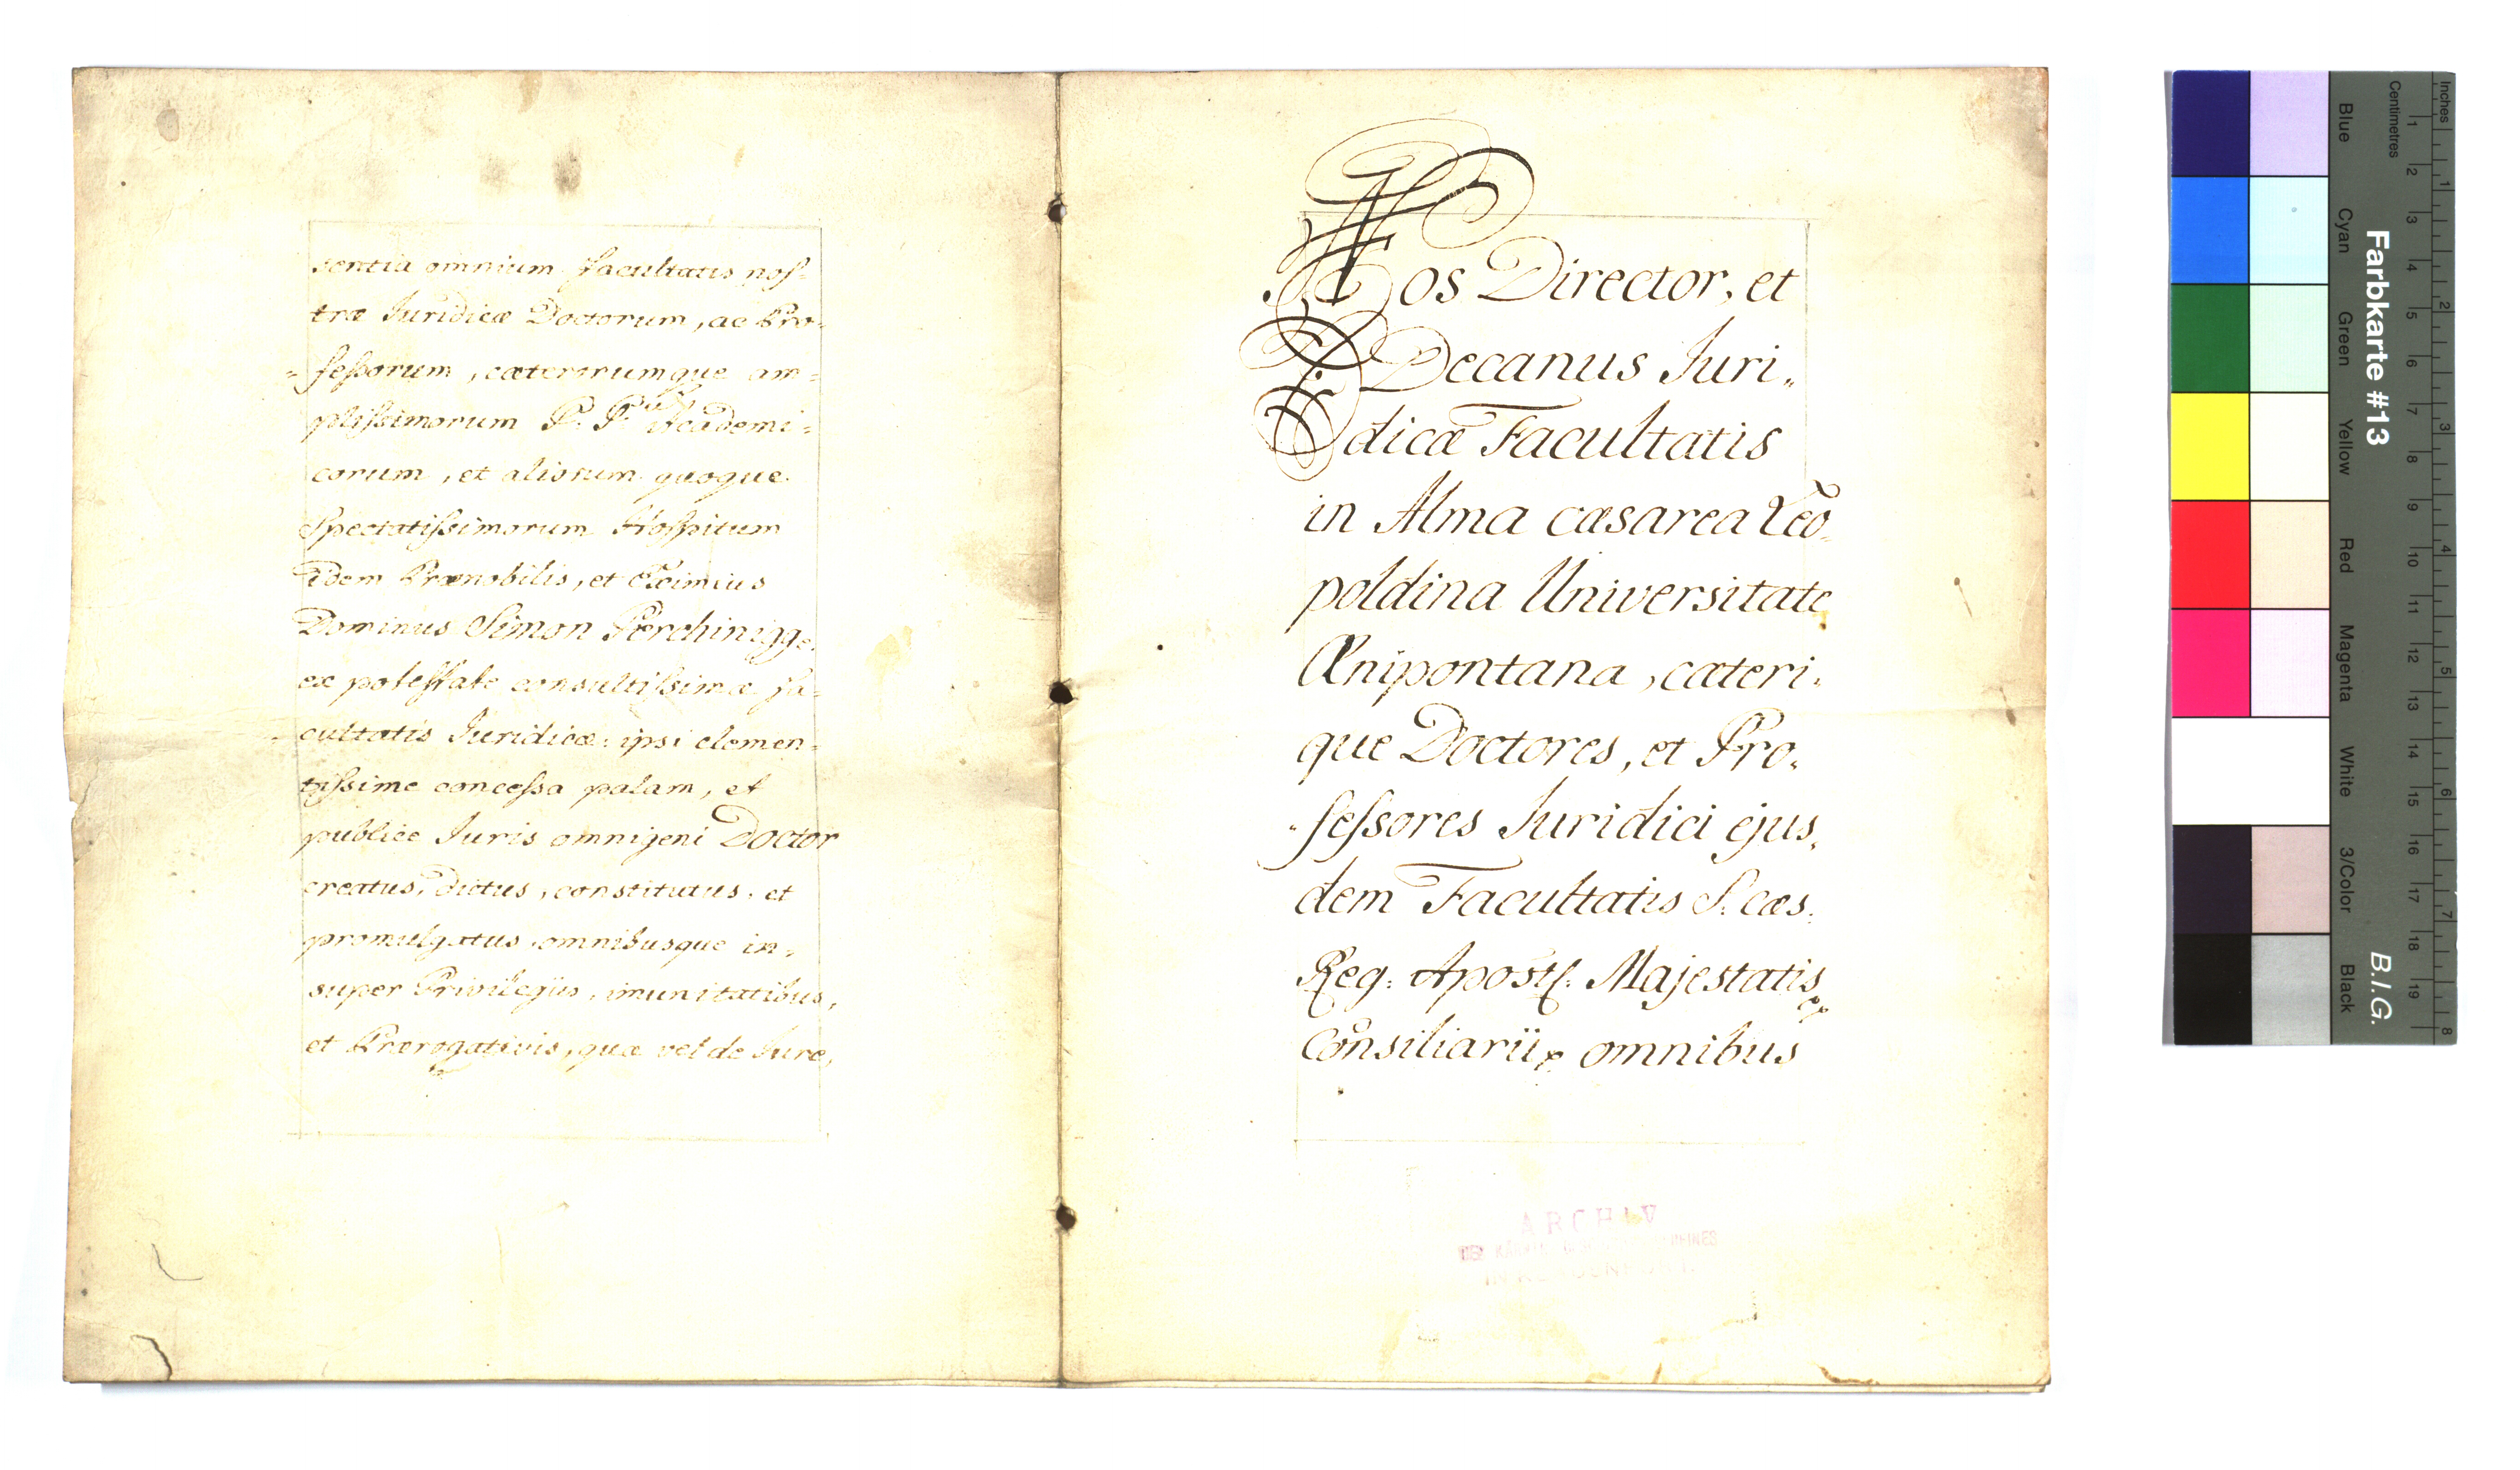 sentia omnium facultatis nos-
træ Juridicæ Doctorum, ac Pro-
=fessorum, cæterorumque am=
plissimorum P. P. Academi=
corum, et aliorum quoque
Spectatissimorum Hospitum
idem Prænobilis, et Eximius
Dominus Simon
ex potestate consultissimæ fa-
cultatis Juridicæ ipsi clemen=
tissime concessa palam, et
publice Juris omnigeni Doctor
creatus, dictus, constitutus, et
promulgatus omnibusque in=
super Privilegijs, imunitatibus,
et Prærogativis, quæ vel de Jure,
Nos Director, et
Decanus Juri„
dicæ Facultatis
in Alma cæsarea Leo-
poldina Universitate
Ænipontana, cæteri„
que Doctores, et Pro„
fessores Juridici ejus„
dem Facultatis S. cæs.
Reg: Apostl: Majestatis
Consiliarii omnibus
ARCHIV
Inches
Centimetres
1 2 3 4 5 6 7 8 9 10 11 12 13 14 15 16 17 18 19
1 2 3 4 5 6 7 8
Farbkarte #13
B.I.G.
Blue
Cyan
Green
Yellow
Red
Magenta
White
3/Color
Black